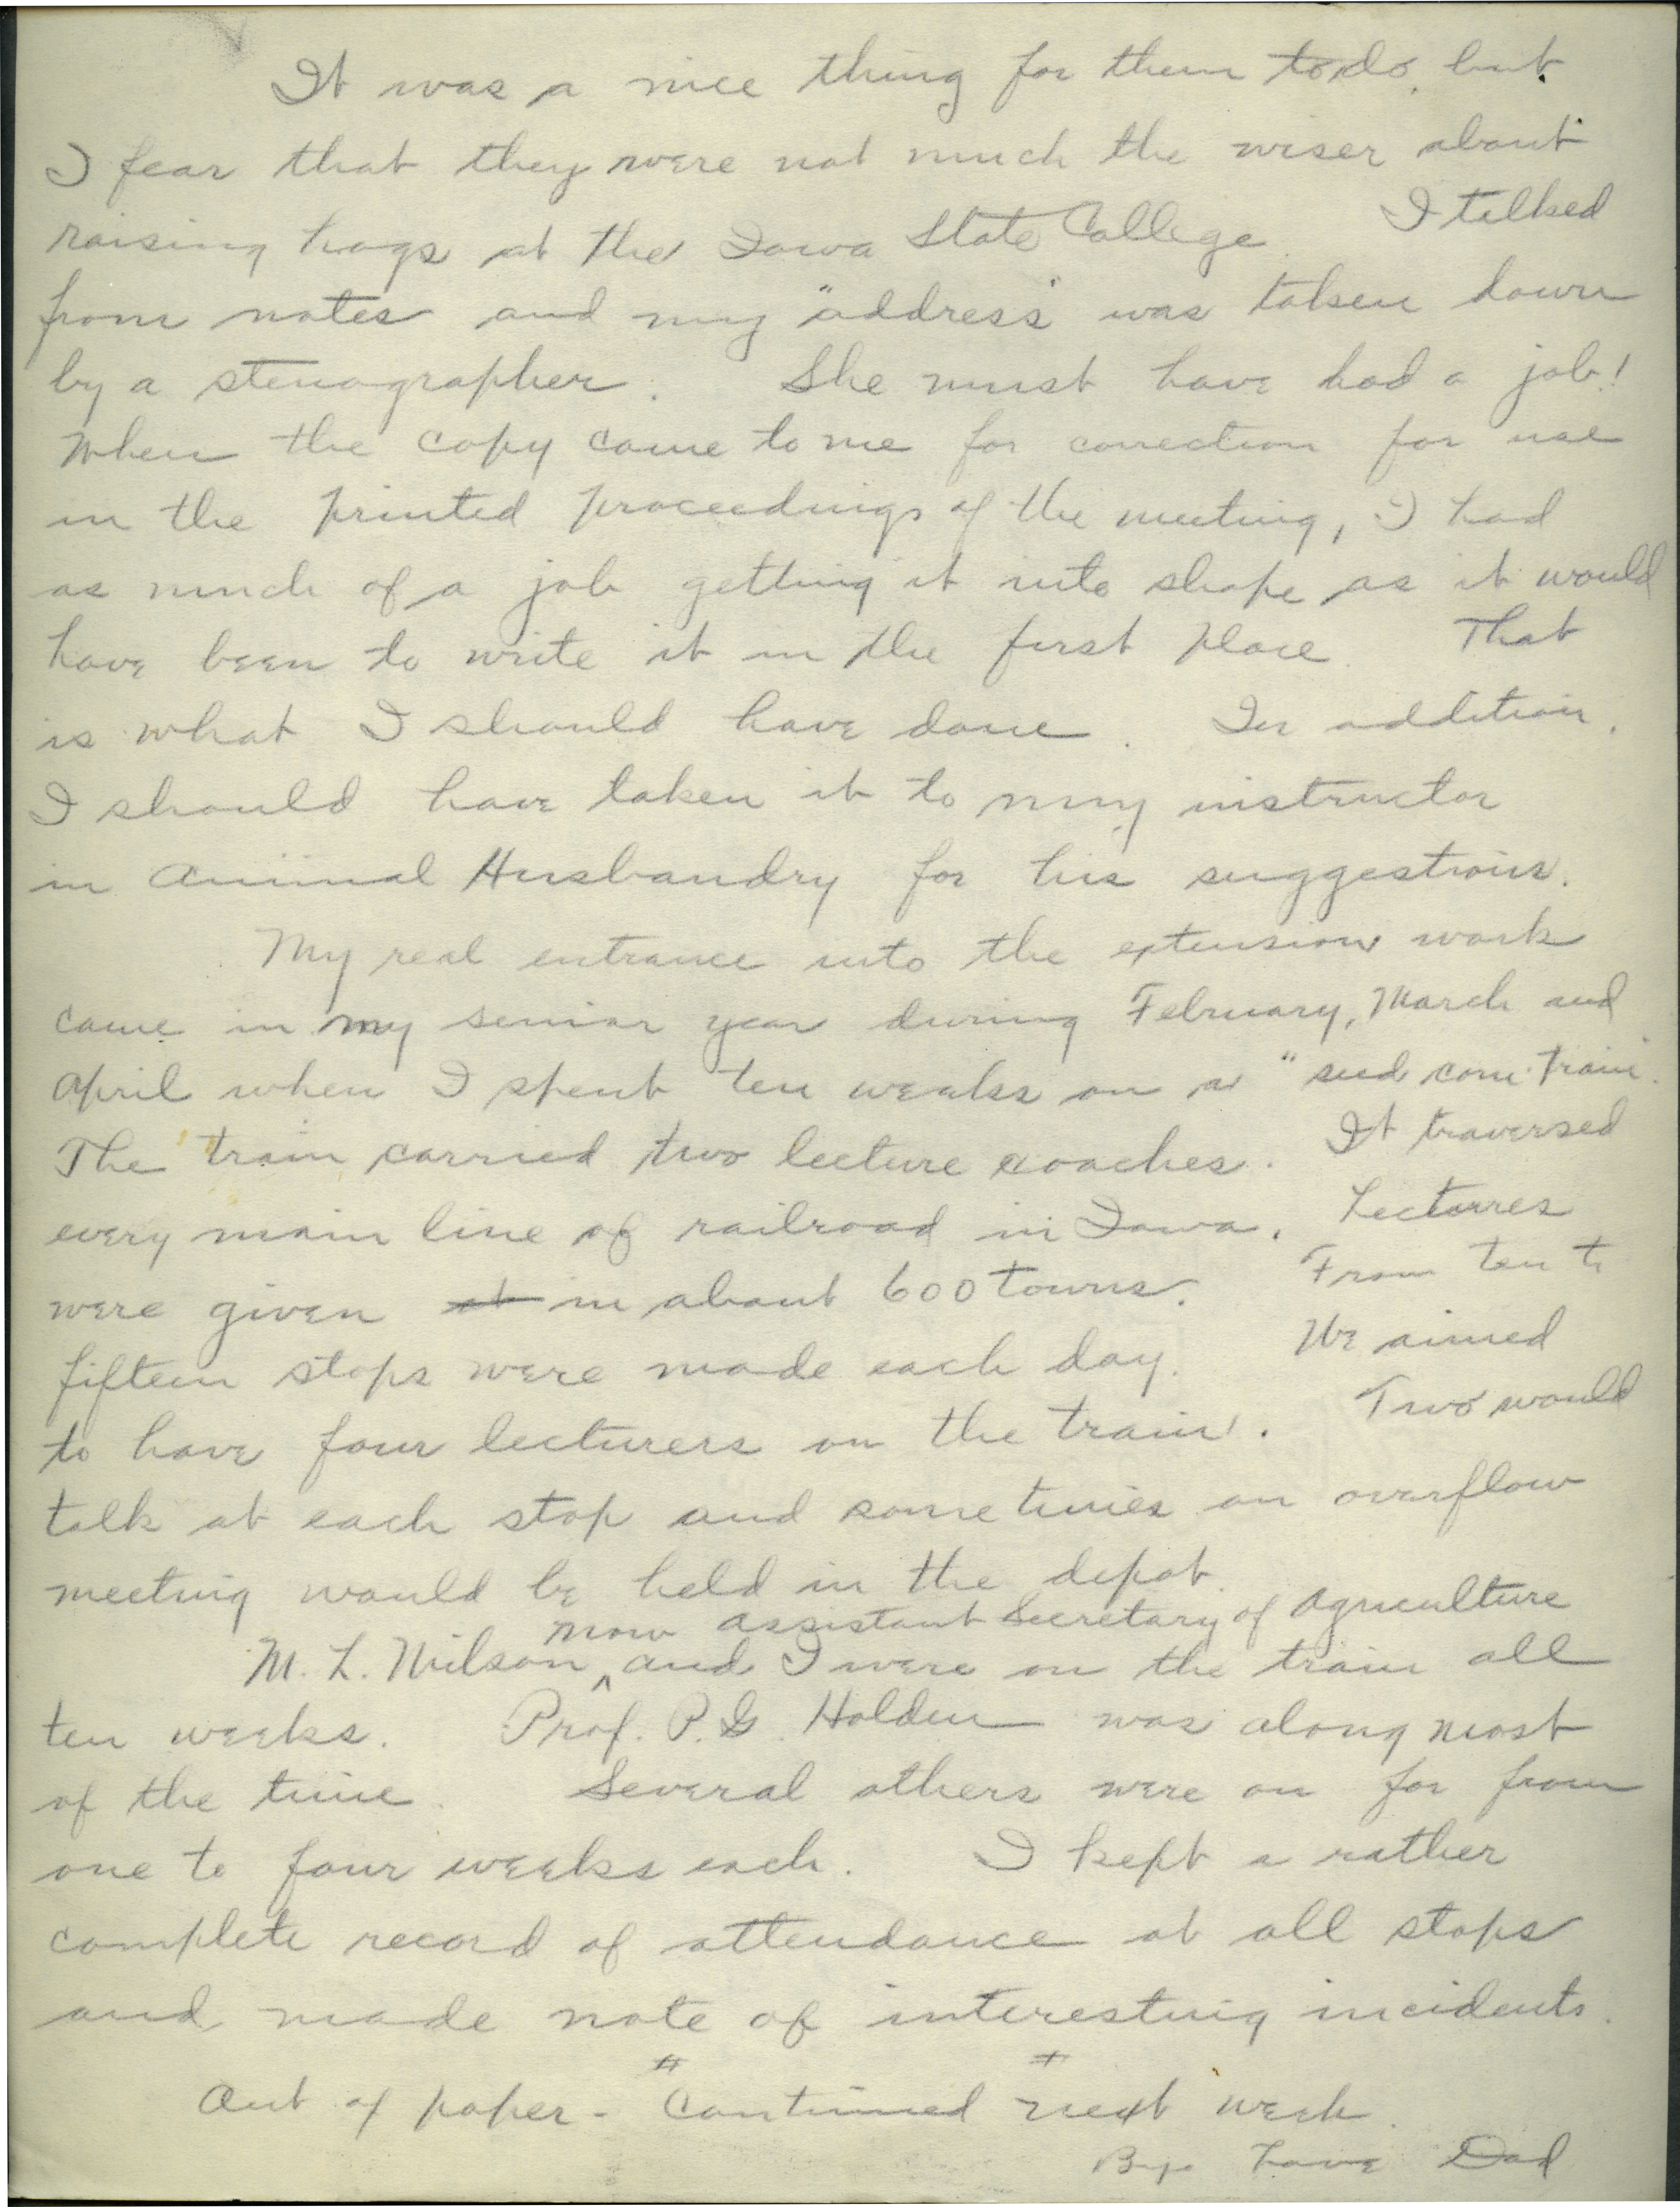 It was a nice thing for them to do, but
I fear that they were not much the wiser about
raising hogs at the Iowa State College. I talked
from notes and my "address" was taken down
by a stenographer. She must have had a job!
When the copy came to me for correction for use
in the printed proceedings of the meeting, I had
as much of a job getting it into shape as it would
have been to write it in the first place. That
is what I should have done. In addition,
I should have taken it to my instructor
in Animal Husbandry for his suggestions.
My real entrance into the extension work
came in my senior year during February, March and
April when I spent ten weeks on a "seed corn train.
The train carried two lecture coaches. It traversed
every main line of railroad in Iowa. Lectures
were given at in about 600 towns. From ten to
fifteen stops were made each day. We aimed
to have four lecturers on the train. Two would
talk at each stop and sometimes an overflow
meeting would be held in the depot.
now assistant Secretary of Agriculture
M. L. Wilson ^ and I were on the train all
ten weeks. Prof. P. G. Holden was along most
of the time. Several others were on for from
one to four weeks each. I kept a rather
complete record of attendance at all stops
and made note of interesting incidents.
Out of paper - "Continued next week.
Bye Love Dad